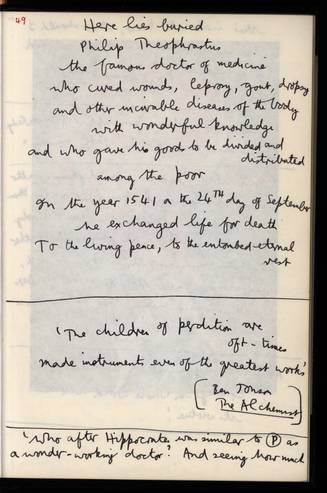 49
Here lies buried
Philip Theophrastus
the famous doctor of medicine
who cured wounds, leprosy, gout, dropsy
and other incurable diseases of the body
with wonderful knowledge
and who gave his goods to be divided and
distributed
among the poor
In the year 1541 on the 24TH day of September
he exchanged life for death
To the living peace, to the entombed eternal
rest
'The children of perdition are
oft-times
made instruments even of the greatest works'
Ben Jonson
The Alchemist
'Who after Hippocrates was similar to P as
a wonder-working doctor? And seeing how much